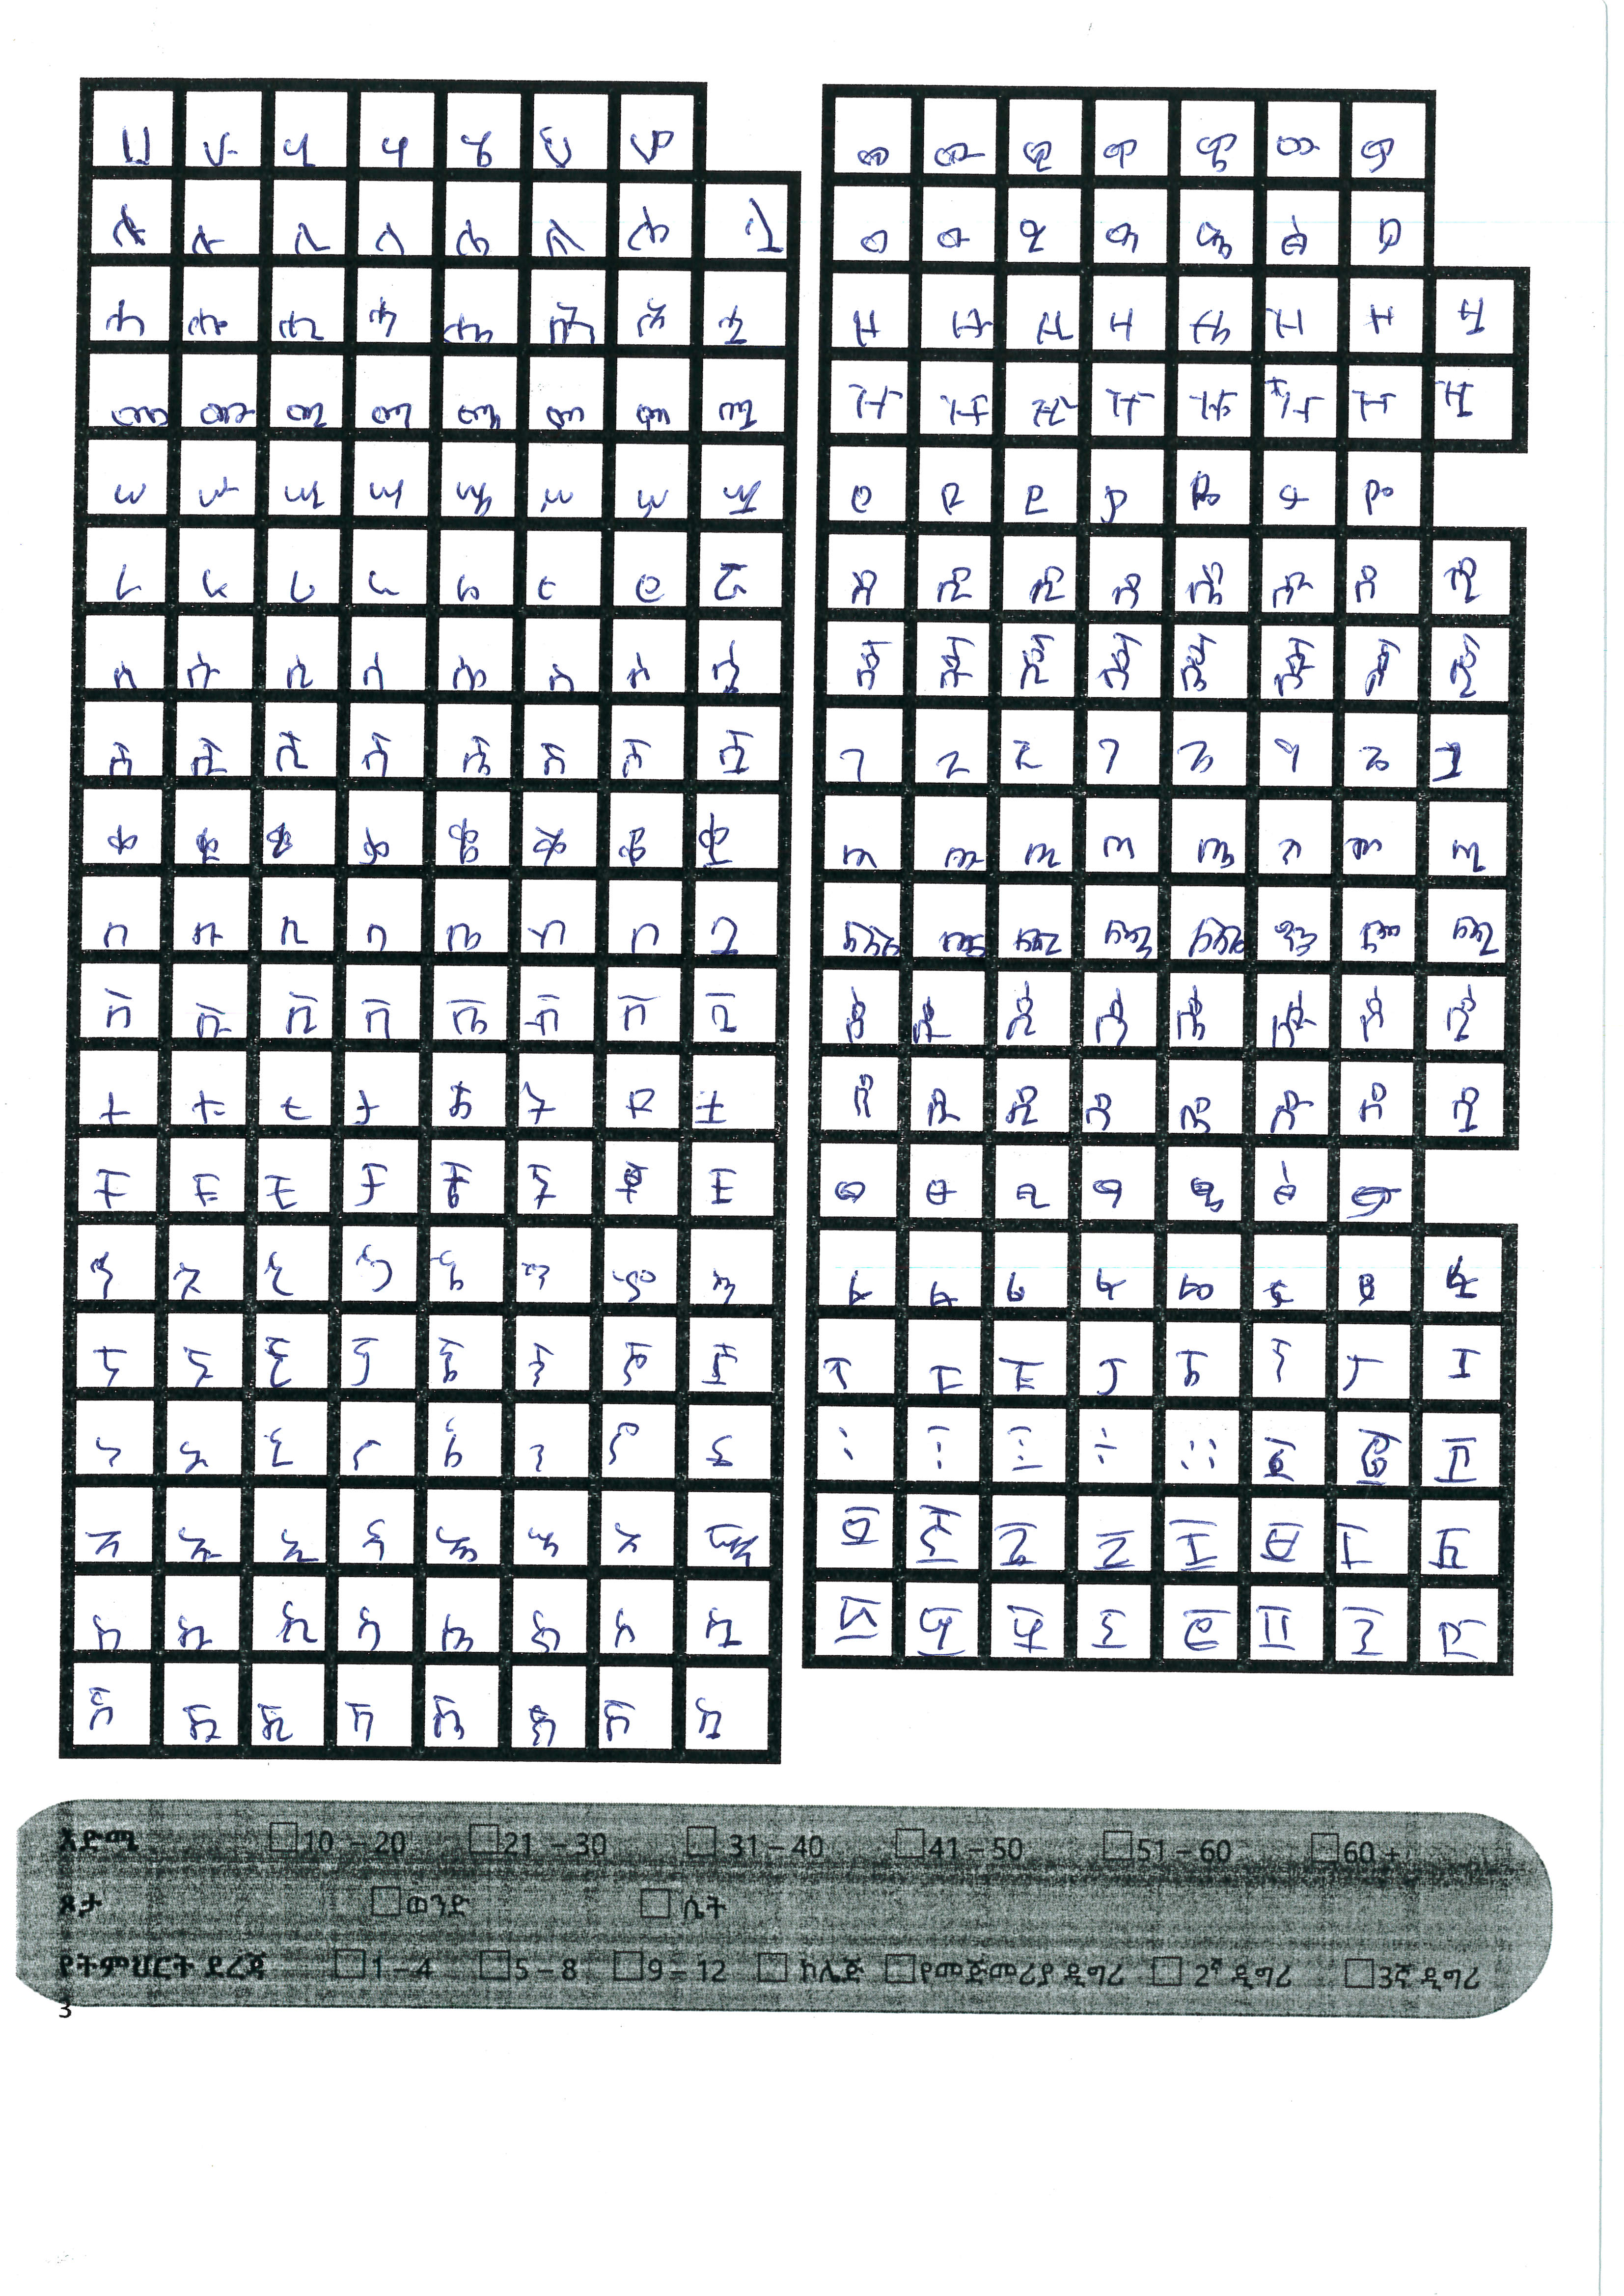 ሀ ሁ ሂ ሃ ሄ ህ ሆ
ለ ሉ ሊ ላ ሌ ል ሎ ሏ
ሐ ሑ ሒ ሓ ሔ ሕ ሖ ሗ
መ ሙ ሚ ማ ሜ ም ሞ ሟ
ሠ ሡ ሢ ሣ ሤ ሥ ሦ ሧ
ረ ሩ ሪ ራ ሬ ር ሮ ሯ
ሰ ሱ ሲ ሳ ሴ ስ ሶ ሷ
ሸ ሹ ሺ ሻ ሼ ሽ ሾ ሿ
ቀ ቁ ቂ ቃ ቄ ቅ ቆ ቋ
በ ቡ ቢ ባ ቤ ብ ቦ ቧ
ቨ ቩ ቪ ቫ ቬ ቭ ቮ ቯ
ተ ቱ ቲ ታ ቴ ት ቶ ቷ
ቸ ቹ ቺ ቻ ቼ ች ቾ ቿ
ኀ ኁ ኂ ኃ ኄ ኅ ኆ ኋ
ኘ ኙ ኚ ኛ ኜ ኝ ኞ ኟ
ነ ኑ ኒ ና ኔ ን ኖ ኗ
አ ኡ ኢ ኣ ኤ እ ኦ ኧ
ከ ኩ ኪ ካ ኬ ክ ኮ ኳ
ኸ ኹ ኺ ኻ ኼ ኽ ኾ ዃ
ወ ዉ ዊ ዋ ዌ ው ዎ
ዐ ዑ ዒ ዓ ዔ ዕ ዖ
ዘ ዙ ዚ ዛ ዜ ዝ ዞ ዟ
ዠ ዡ ዢ ዣ ዤ ዥ ዦ ዧ
የ ዩ ዪ ያ ዬ ይ ዮ
ደ ዱ ዲ ዳ ዴ ድ ዶ ዷ
ጀ ጁ ጂ ጃ ጄ ጅ ጆ ጇ
ገ ጉ ጊ ጋ ጌ ግ ጎ ጓ
ጠ ጡ ጢ ጣ ጤ ጥ ጦ ጧ
ጨ ጩ ጪ ጫ ጬ ጭ ጮ ጯ
ጰ ጱ ጲ ጳ ጴ ጵ ጶ ጷ
ጸ ጹ ጺ ጻ ጼ ጽ ጾ ጿ
ፀ ፁ ፂ ፃ ፄ ፅ ፆ
ፈ ፉ ፊ ፋ ፌ ፍ ፎ ፏ
ፐ ፑ ፒ ፓ ፔ ፕ ፖ ፗ
፡ ፣ ፤ ፥ ። ፩ ፪ ፫
፬ ፭ ፮ ፯ ፰ ፱ ፲ ፳
፴ ፵ ፶ ፷ ፸ ፹ ፺ ፻
እድሜ 10 – 20 21 – 30 31 – 40 41 – 50 51 – 60 60 +
ጾታ ወንድ ሴት
የትምህርት ደረጃ 1 – 4 5 – 8 9 – 12 ኮሌጅ የመጅመሪያ ዲግሪ 2ኛ ዲግሪ 3ኛ ዲግሪ
3